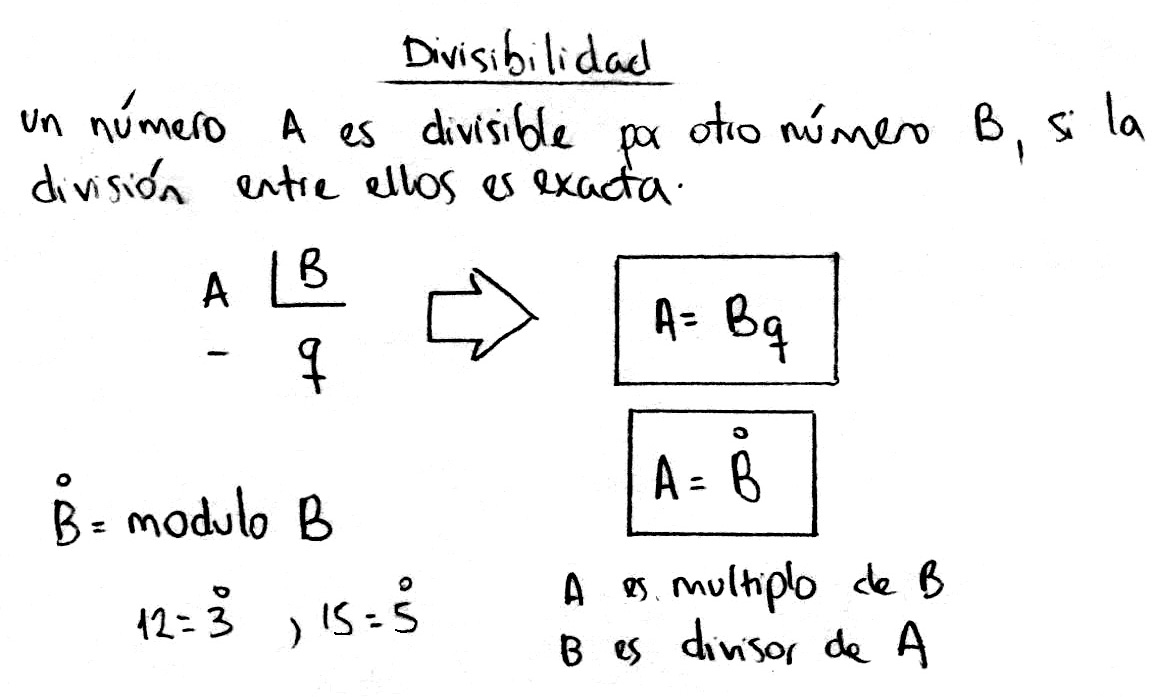 Divisibilidad
un número A es divisible por otro número B, si la
división entre ellos es exacta.
A B
- q
A= Bq
A = B̊
B̊ = modulo B
12 = 3̊ , 15 = 5̊
A es multiplo de B
B es divisor de A